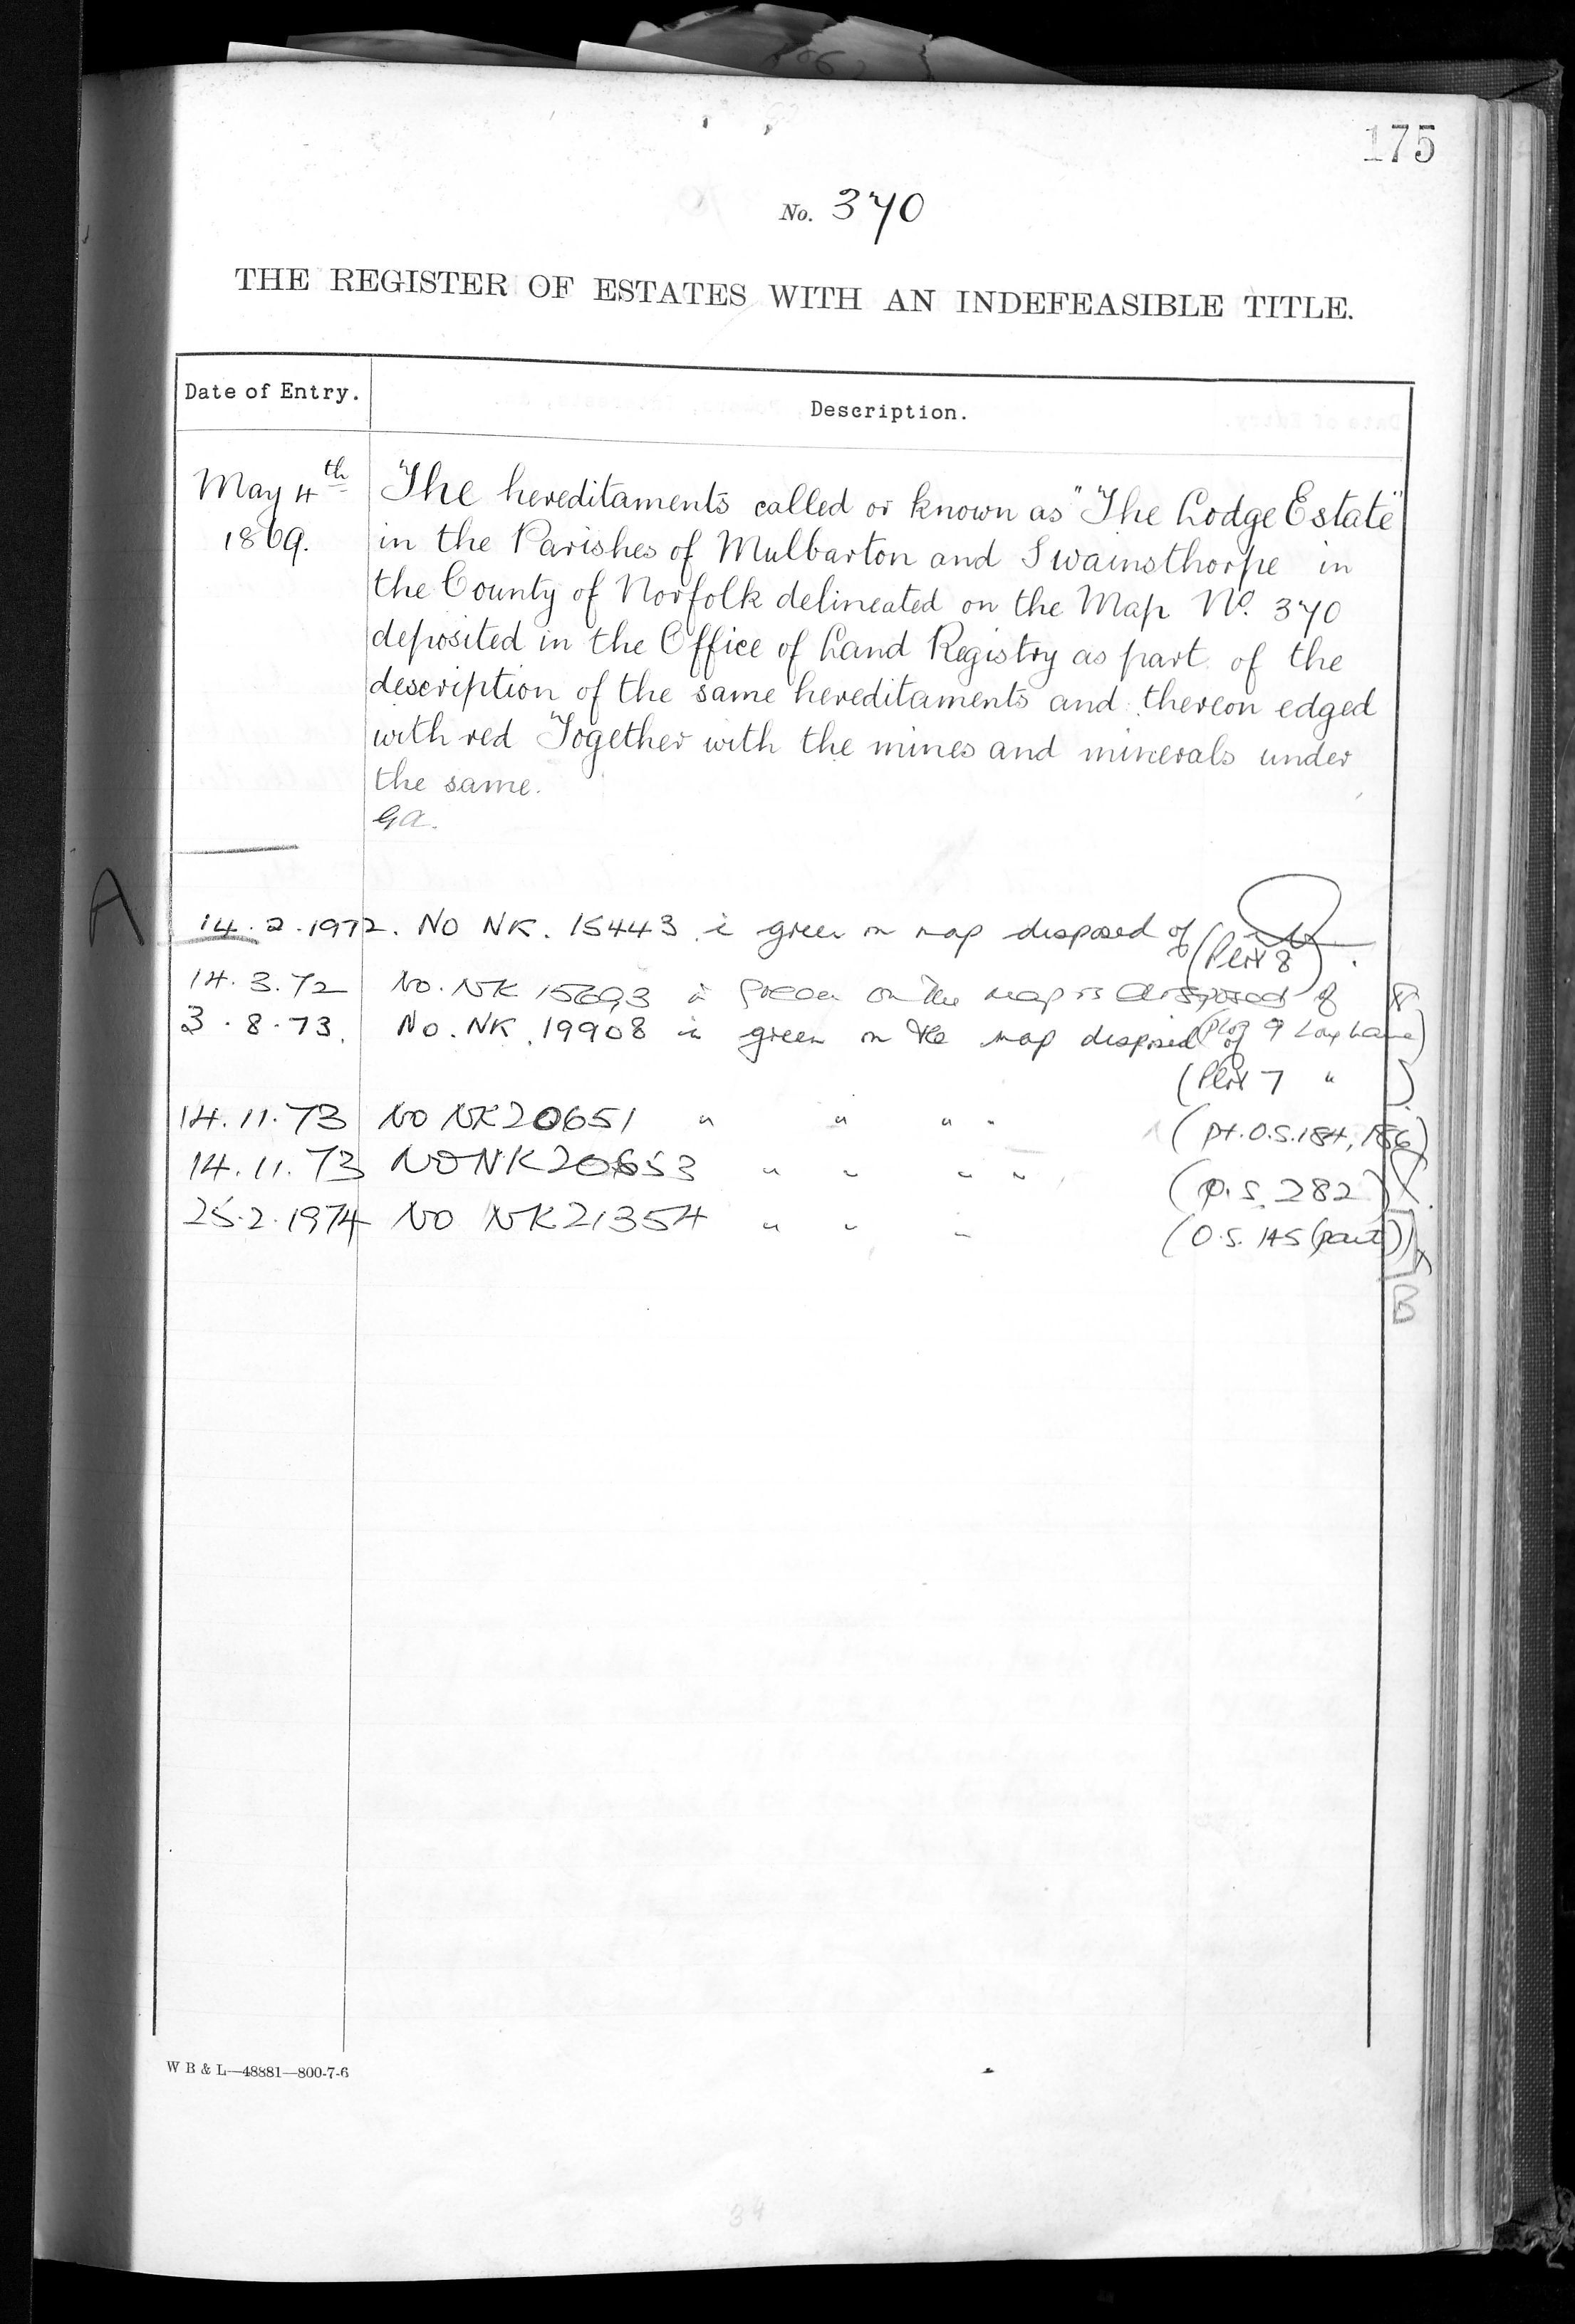 175
No. 370
THE REGISTER OF ESTATES WITH AN INDEFEASIBLE TITLE.
Date of Entry. Description.
May 4th The hereditaments called or known as "The Lodge Estate"
1869. in the Parishes of Mulbarton and Swainsthorpe in
the County of Norfolk delineated on the Map No. 370
deposited in the Office of Land Registry as part of the
description of the same hereditaments and thereon edged
with red Together with the mines and minerals under
the same.
GA.
A
14.2.1972. No NK. 15443 in green on map disposed of
(Plot 8)
14.3.72 No. NK 15693 in green on the map is disposed of
(Plot 9 Long Lane)
3.8.73. No. NK. 19908 in green on the map disposed of
(Plot 7 " )
14.11.73 No NK20651 " " " " (pt. O.S. 184, 186)
14.11.73 NO NK20653 " " " " (O.S. 282)
25.2.1974 NO NK21354 " " " (O.S. 145 (part))
B
W B & L—48881—800-7-6
34